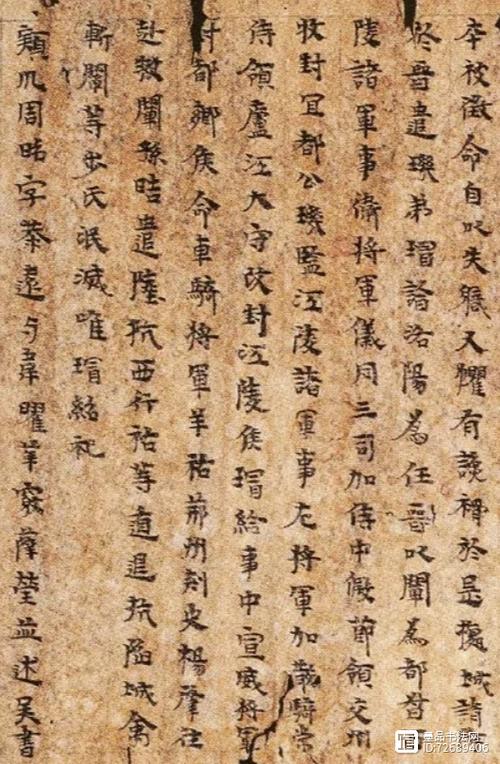 卒被徵命自以失職又懼有讒禍於是據城諸
於晉遣璣弟璿詣洛陽為任晉以闡為都督西
陵諸軍事衛將軍儀同三司加侍中假節領交州
牧封宜都公璣監江陵諸軍事左將軍加散騎常
侍領廬江大守改封江陵侯璿給事中宣威將軍
封都鄉侯命車騎將軍羊祜荊州刺史楊肇往
赴救闡孫晧遣陸抗西行祜等遁退抗陷城禽
斬闡等步氏泯滅唯璿紹祀
潁川周昭字恭遠与韋曜華覈薛瑩並述吳書
墨品书法网
ID:72639406